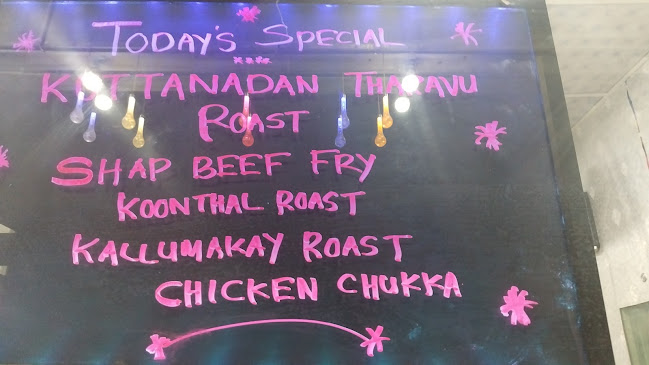 TODAY'S SPECIAL
KUTTANADAN THARAVU
ROAST
SHAP BEEF FRY
KOONTHAL ROAST
KALLUMAKAY ROAST
CHICKEN CHUKKA